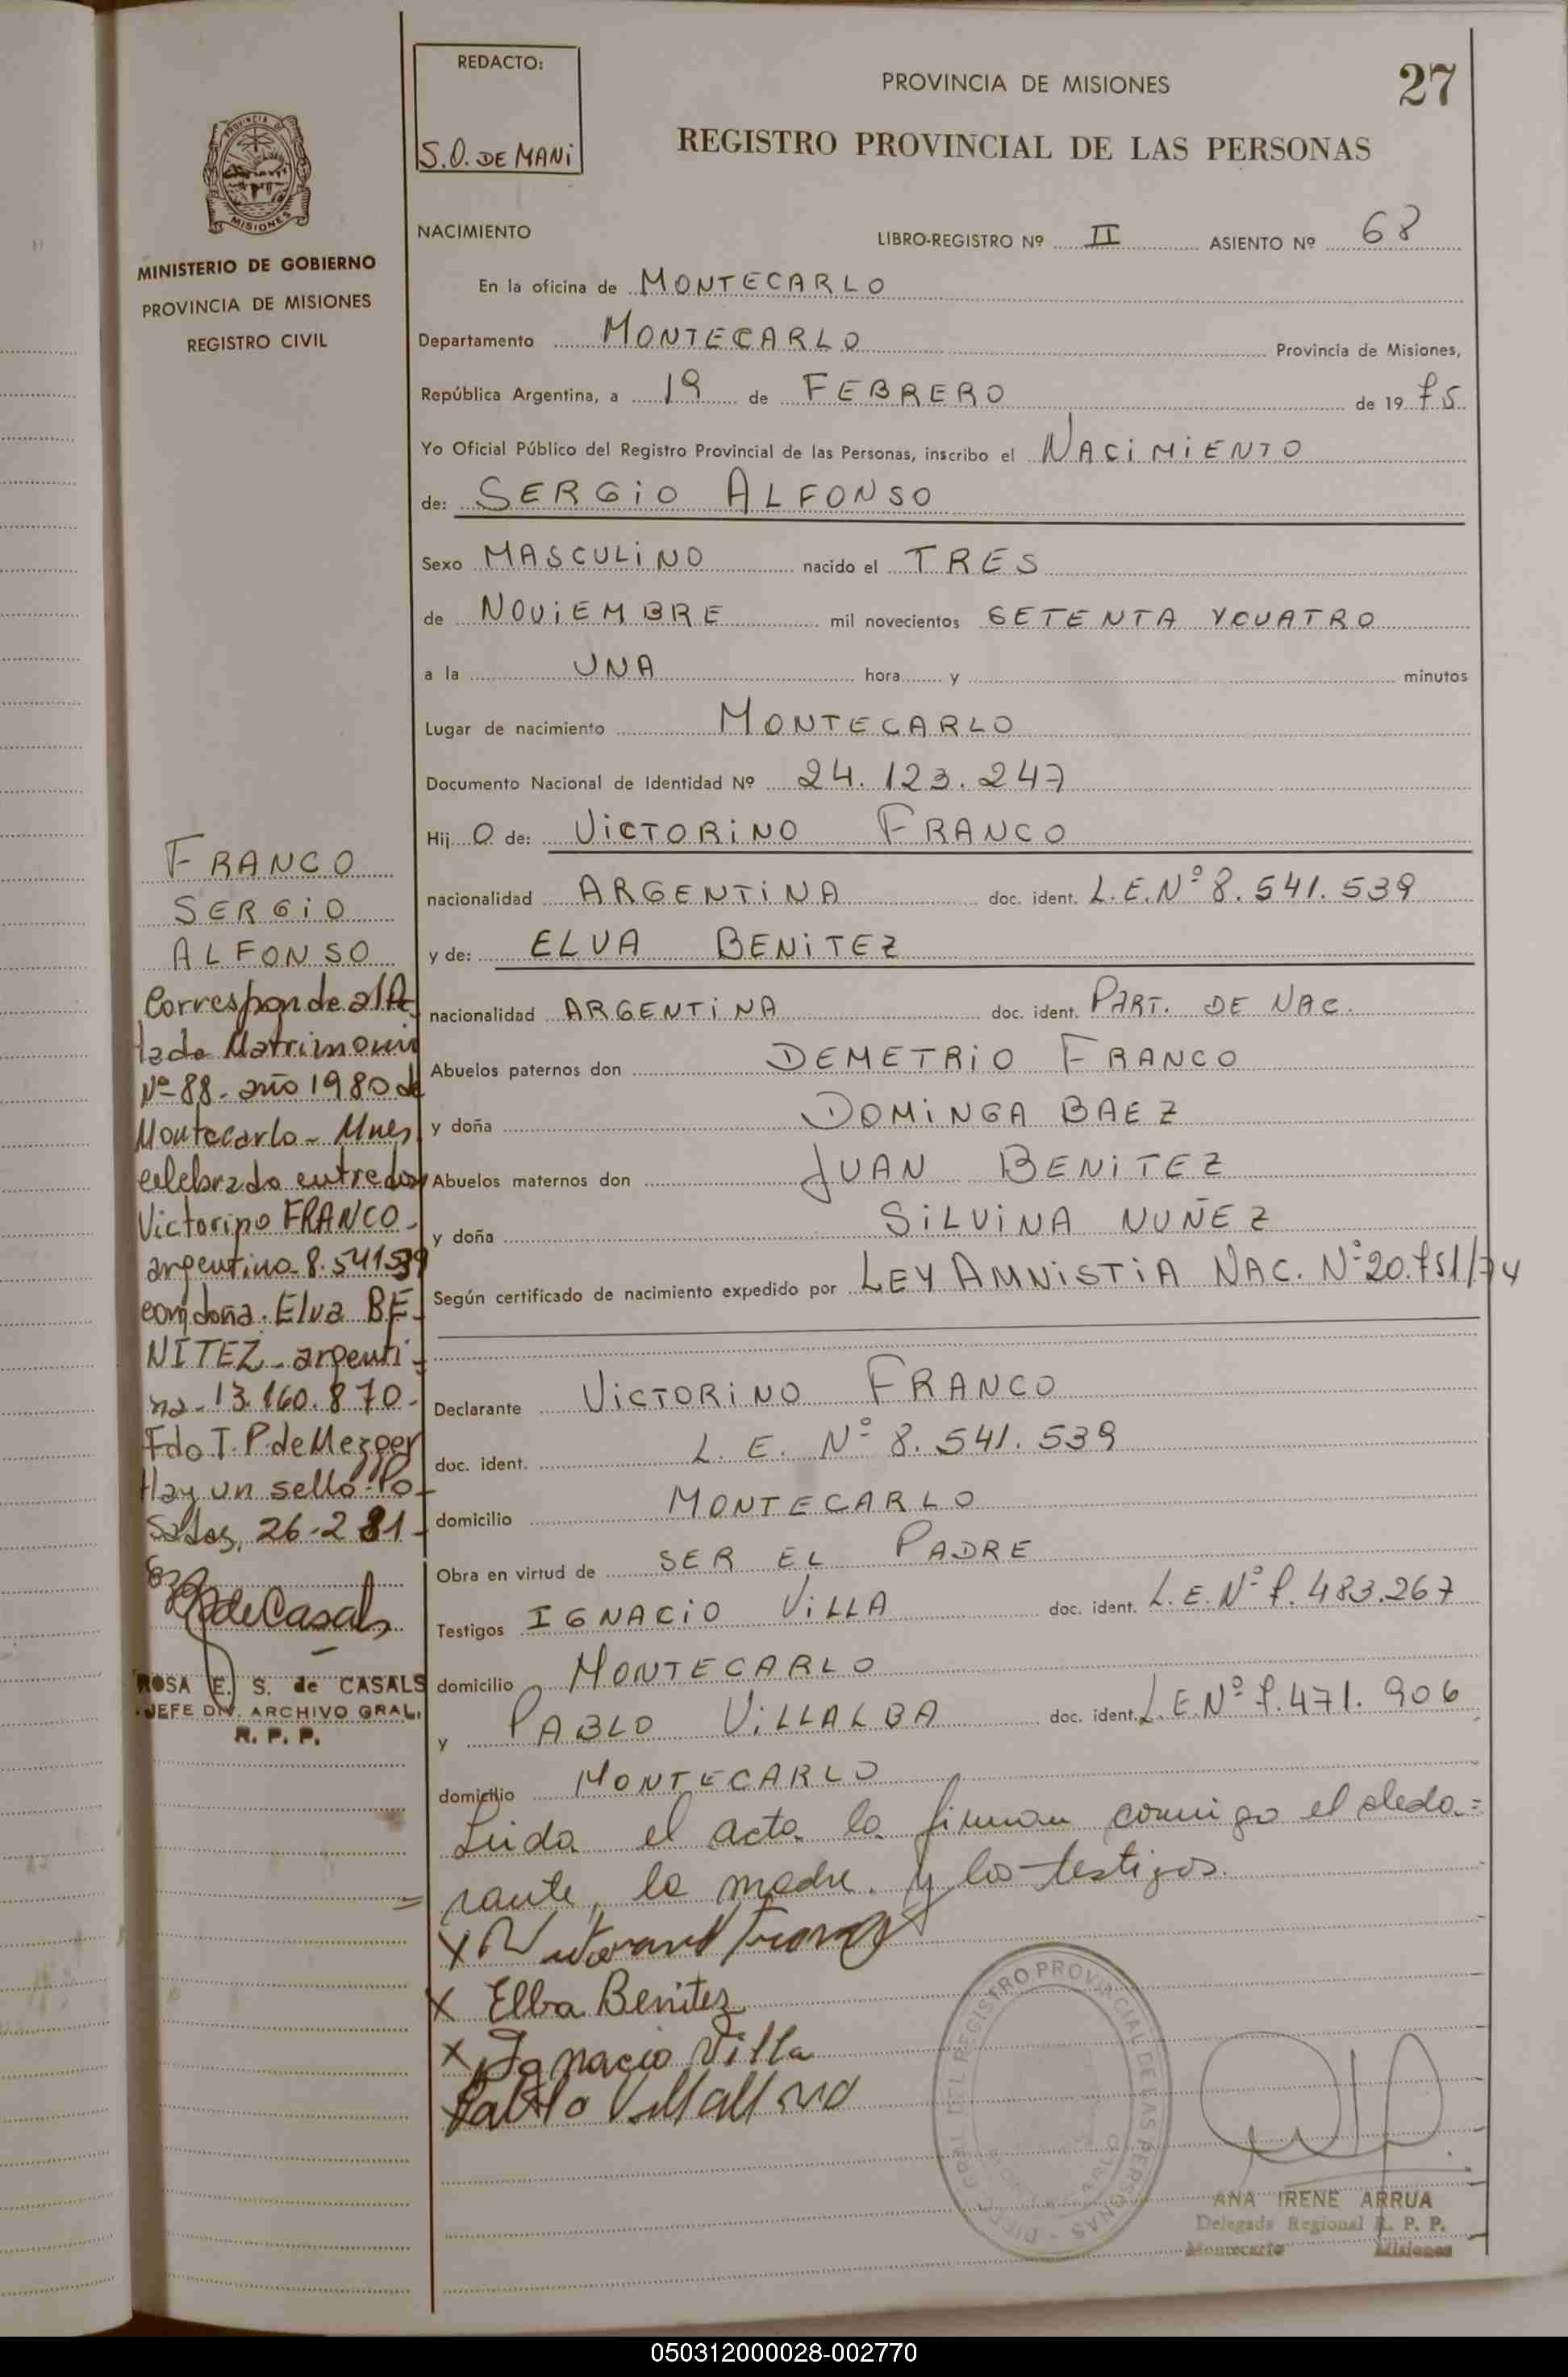 REDACTO:
S.O. DE MANI
PROVINCIA DE MISIONES
27
REGISTRO PROVINCIAL DE LAS PERSONAS
PROVINCIA DE
MISIONES
MINISTERIO DE GOBIERNO
PROVINCIA DE MISIONES
REGISTRO CIVIL
NACIMIENTO LIBRO-REGISTRO Nº II ASIENTO Nº 68
En la oficina de MONTECARLO
Departamento MONTECARLO Provincia de Misiones,
República Argentina, a 19 de FEBRERO de 1975
Yo Oficial Público del Registro Provincial de las Personas, inscribo el NACIMIENTO
de: SERGIO ALFONSO
Sexo MASCULINO nacido el TRES
de NOVIEMBRE mil novecientos SETENTA Y CUATRO
a la UNA hora y minutos
Lugar de nacimiento MONTECARLO
Documento Nacional de Identidad Nº 24.123.247
Hij O de: VICTORINO FRANCO
nacionalidad ARGENTINA doc. ident. L.E.Nº 8.541.539
y de: ELVA BENITEZ
nacionalidad ARGENTINA doc. ident. PART. DE NAC.
Abuelos paternos don DEMETRIO FRANCO
y doña DOMINGA BAEZ
Abuelos maternos don JUAN BENITEZ
y doña SILVINA NUÑEZ
Según certificado de nacimiento expedido por LEY AMNISTIA NAC. Nº 20.751/74
Declarante VICTORINO FRANCO
doc. ident. L. E. Nº 8.541.539
domicilio MONTECARLO
Obra en virtud de SER EL PADRE
Testigos IGNACIO VILLA doc. ident. L.E.Nº 7.483.267
domicilio MONTECARLO
y PABLO VILLALBA doc. ident. L.E.Nº 7.471.906
domicilio MONTECARLO
Leida el acta la firman comigo el decla=
=rante, la madre y los testigos.
X Victorino Franco
X Elba Benitez
X Ignacio Villa
Pablo Villalba
FRANCO
SERGIO
ALFONSO
Corresponde al Ac
tada Matrimoni
Nº 88- año 1980 de
Montecarlo - Mnes
celebrado entre don
Victorino FRANCO-
argentino 8.541539
con doña. Elva BE-
NITEZ - argenti-
na - 13.160.870-
Fdo T. P. de Mezger
Hay un sello. Po-
sadas, 26-2 81-
de Casals
ROSA E. S. de CASALS
JEFE DIV. ARCHIVO GRAL.
R. P. P.
DIREC. GRAL. DEL REGISTRO PROVINCIAL DE LAS PERSONAS -
MONTECARLO
ANA IRENE ARRUA
Delegada Regional R. P. P.
Montecarlo Misiones
050312000028-002770